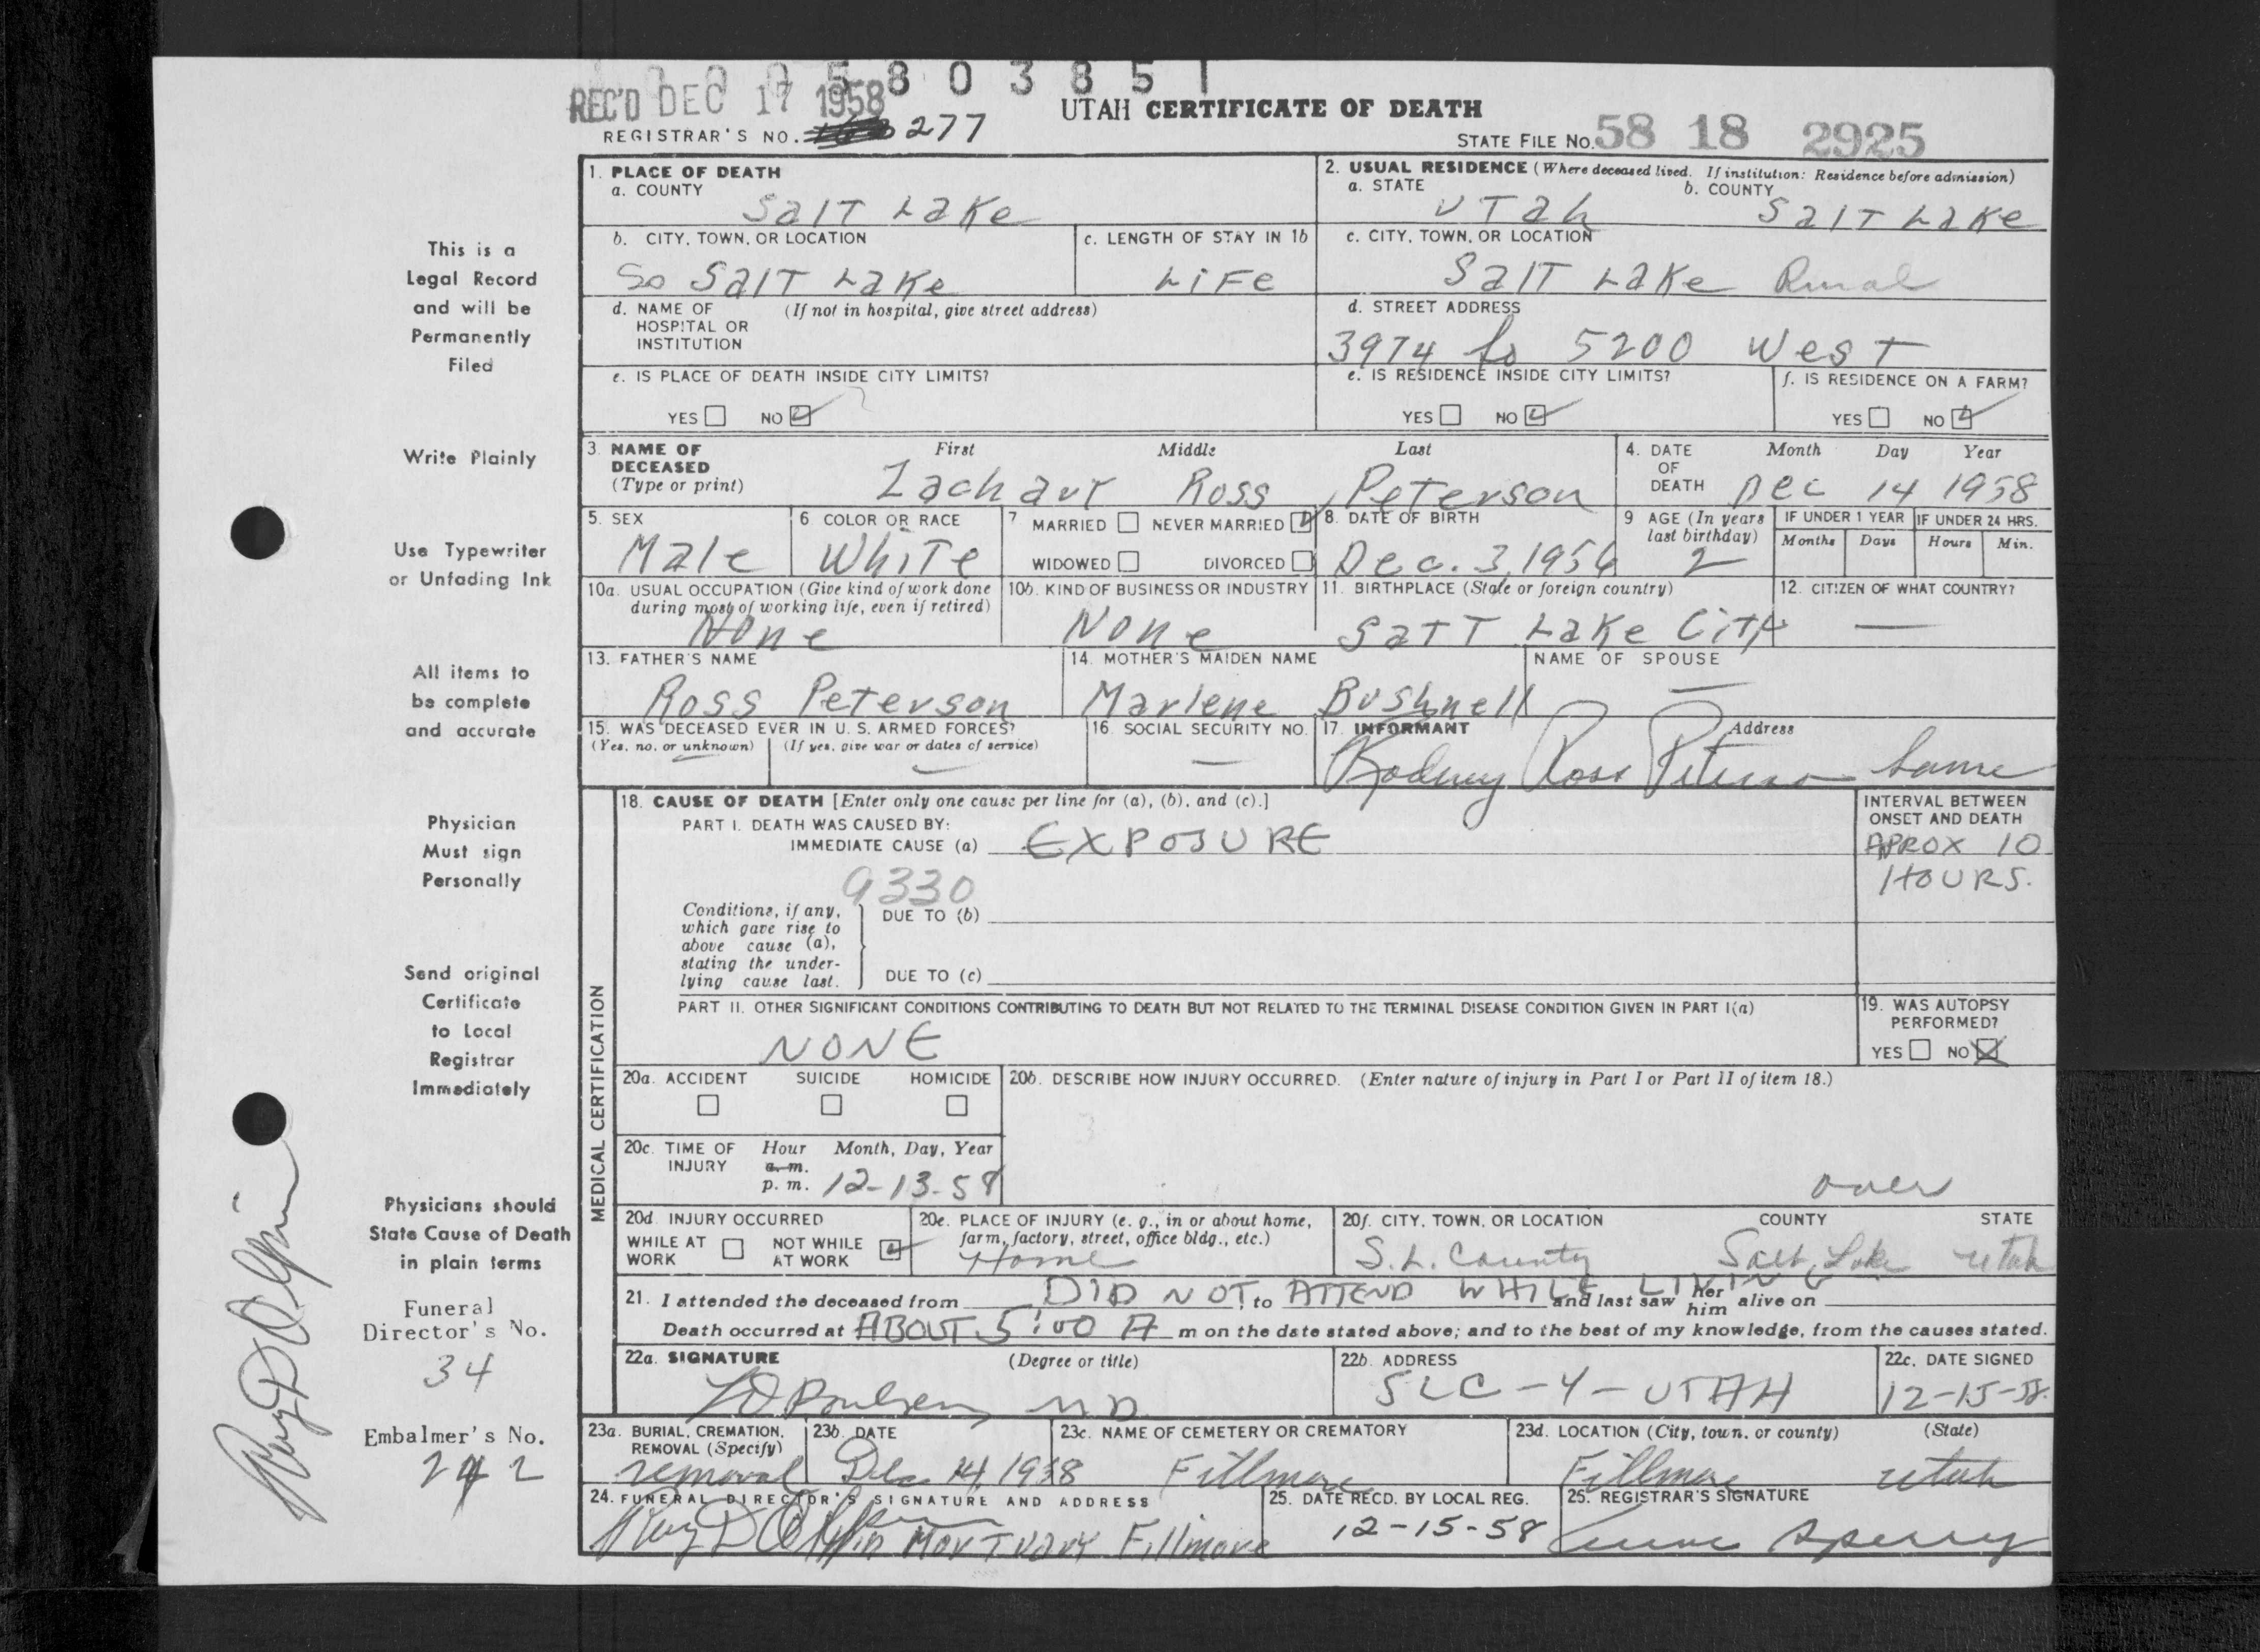 0 0 0 5 8 0 3 8 5 1
REC'D DEC 17 1958
UTAH CERTIFICATE OF DEATH
REGISTRAR'S NO. 277
STATE FILE NO. 58 18 2925
This is a
Legal Record
and will be
Permanently
Filed
Write Plainly
Use Typewriter
or Unfading Ink
All items to
be complete
and accurate
Physician
Must sign
Personally
Send original
Certificate
to Local
Registrar
Immediately
Physicians should
State Cause of Death
in plain terms
Funeral
Director's No.
34
Embalmer's No.
242
1. PLACE OF DEATH
a. COUNTY
Salt Lake
2. USUAL RESIDENCE (Where deceased lived. If institution: Residence before admission)
a. STATE b. COUNTY
Utah Salt Lake
b. CITY, TOWN, OR LOCATION
So Salt Lake
c. LENGTH OF STAY IN 1b
Life
c. CITY, TOWN, OR LOCATION
Salt Lake Rural
d. NAME OF (If not in hospital, give street address)
HOSPITAL OR
INSTITUTION
d. STREET ADDRESS
3974 So 5200 West
e. IS PLACE OF DEATH INSIDE CITY LIMITS?
YES NO
e. IS RESIDENCE INSIDE CITY LIMITS?
YES NO
f. IS RESIDENCE ON A FARM?
YES NO
3. NAME OF First Middle Last
DECEASED
(Type or print)
Zachary Ross Peterson
4. DATE Month Day Year
OF
DEATH Dec 14 1958
5. SEX
Male
6 COLOR OR RACE
White
7 MARRIED NEVER MARRIED
WIDOWED DIVORCED
8. DATE OF BIRTH
Dec. 3, 1956
9 AGE (In years
last birthday)
2
IF UNDER 1 YEAR IF UNDER 24 HRS.
Months Days Hours Min.
10a. USUAL OCCUPATION (Give kind of work done
during most of working life, even if retired)
None
10b. KIND OF BUSINESS OR INDUSTRY
None
11. BIRTHPLACE (State or foreign country)
Salt Lake City
12. CITIZEN OF WHAT COUNTRY?
—
13. FATHER'S NAME
Ross Peterson
14. MOTHER'S MAIDEN NAME
Marlene Bushnell
NAME OF SPOUSE
—
15. WAS DECEASED EVER IN U. S. ARMED FORCES?
(Yes, no, or unknown) (If yes, give war or dates of service)
16. SOCIAL SECURITY NO.
—
17. INFORMANT Address
Rodney Ross Peterson Same
MEDICAL CERTIFICATION
18. CAUSE OF DEATH [Enter only one cause per line for (a), (b), and (c).]
PART I. DEATH WAS CAUSED BY:
IMMEDIATE CAUSE (a) EXPOSURE
INTERVAL BETWEEN
ONSET AND DEATH
APROX 10
HOURS.
9330
Conditions, if any,
which gave rise to
above cause (a),
stating the under-
lying cause last.
DUE TO (b)
DUE TO (c)
PART II. OTHER SIGNIFICANT CONDITIONS CONTRIBUTING TO DEATH BUT NOT RELATED TO THE TERMINAL DISEASE CONDITION GIVEN IN PART I(a)
NONE
19. WAS AUTOPSY
PERFORMED?
YES NO
20a. ACCIDENT SUICIDE HOMICIDE
20b. DESCRIBE HOW INJURY OCCURRED. (Enter nature of injury in Part I or Part II of item 18.)
over
20c. TIME OF Hour Month, Day, Year
INJURY a.m.
p. m. 12-13-58
20d. INJURY OCCURRED
WHILE AT NOT WHILE
WORK AT WORK
20e. PLACE OF INJURY (e. g., in or about home,
farm, factory, street, office bldg., etc.)
Home
20f. CITY, TOWN, OR LOCATION COUNTY STATE
S. L. County Salt Lake Utah
21. I attended the deceased from DID NOT, to ATTEND WHILE LIVING and last saw her him alive on
Death occurred at ABOUT 5:00 A m on the date stated above; and to the best of my knowledge, from the causes stated.
22a. SIGNATURE (Degree or title)
Poulsen, MD
22b. ADDRESS
SLC-4-UTAH
22c. DATE SIGNED
12-15-58.
23a. BURIAL, CREMATION,
REMOVAL (Specify)
removal
23b. DATE
Dec 14, 1958
23c. NAME OF CEMETERY OR CREMATORY
Fillmore
23d. LOCATION (City, town, or county) (State)
Fillmore Utah
24. FUNERAL DIRECTOR'S SIGNATURE AND ADDRESS
Mortuary Fillmore
25. DATE RECD. BY LOCAL REG.
12-15-58
25. REGISTRAR'S SIGNATURE
Sperry